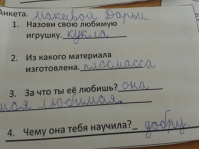 Анкета. Макевой Дарьи
1. Назови свою любимую
игрушку. кукла
2. Из какого материала
изготовлена. пласмасса
3. За что ты её любишь? она
моя любимая.
4. Чему она тебя научила? добру